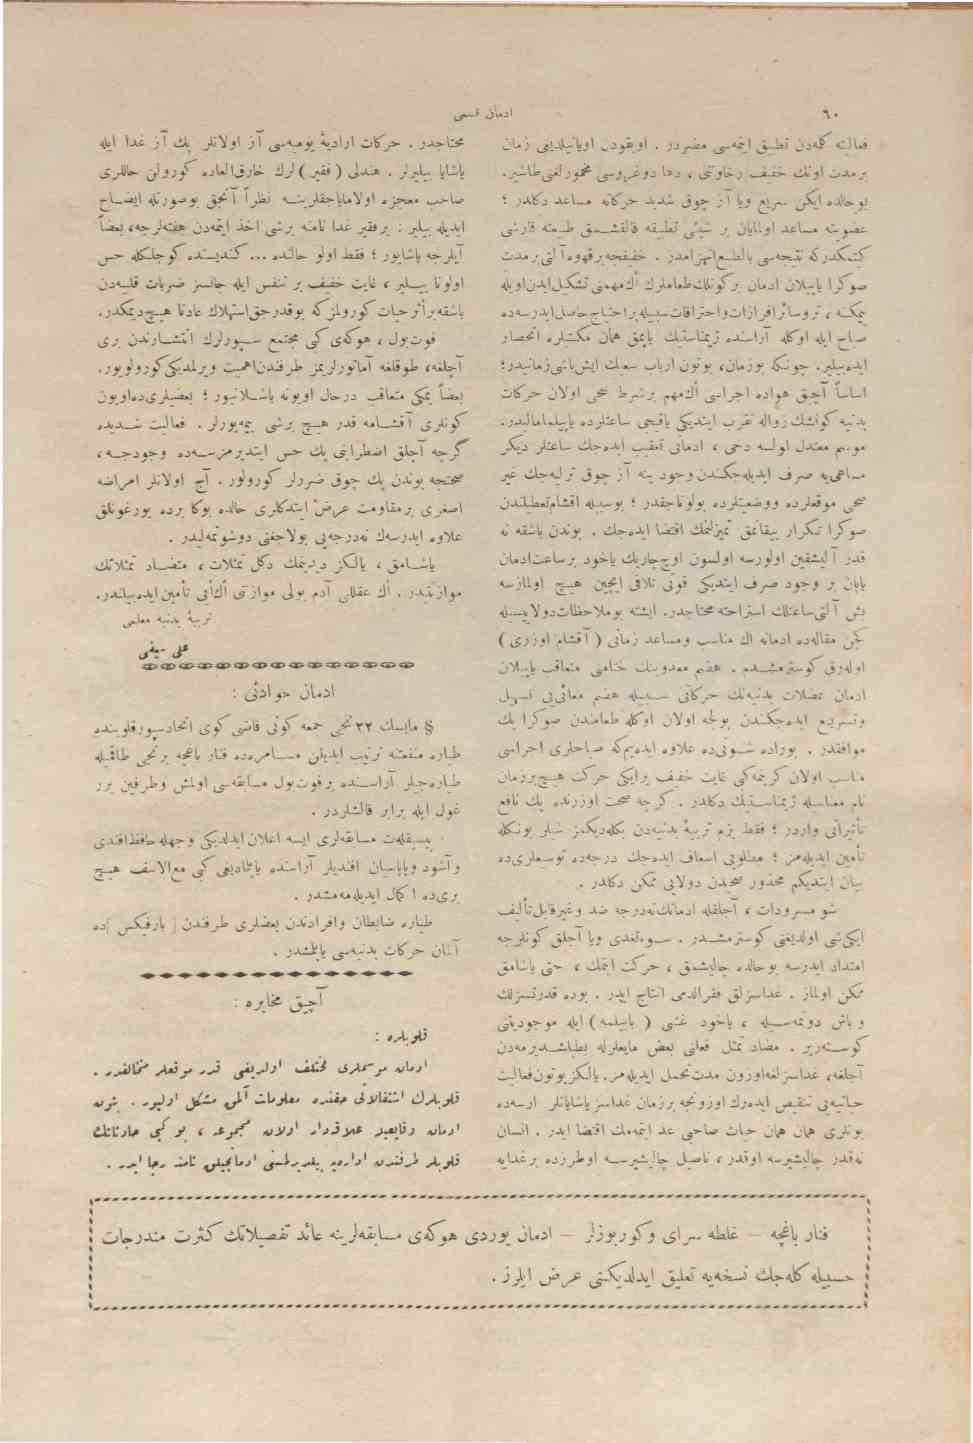 ٦٠
ادمان قسمى
فعاليته كلمه‌دن تطبيق ايتمه‌سى مضردر . اويقودن اويانيلديغى زمان
برمدت اونك خفيف رخاوتنى ، دها دوغروسى مخمورلغنى طاشير.
بوحالده ايكن سريع ويا آز چوق شديد حركاته مساعد دكلدر ؛
عضويته مساعد اولمايان بر شيئى تطبيقه قالقشمق طبيعته قارشى
كيتمكدركه نتيجه‌سى بالطبع انهزامدر . خفيفجه برقهوه آلتى برمدت
صوكرا ياپيلان ادمان بركونلك طعاملرك اك مهمنى تشكيل ايدن اويله
يمكنه ، تر وسائر افرازات واحتراقات سببيله براحتياج حاصل ايدرسه‌ده
صباح ايله اوكله آراسنده ژيمناستيك ياپمق همان مكتبلره انحصار
ايده‌بيلير. چونكه بوزمان، بوتون ارباب سعيك ايش باشى زمانيدر؛
اساساً آچيق هواده اجراسى اك مهم برشرط صحى اولان حركات
بدنيه كونشك زواله تقرب ايتديكى ياقيجى ساعتلرده ياپيلمامالیدر.
موسم معتدل اولسه دخى ، ادمانى تعقيب ايده‌جك ساعتلر ديكر
مساعى‌يه صرف ايديله‌جكندن وجود ينه آز چوق ترليه‌جك غير
صحى موقعلرده ووضعيتلرده بولوناجقدر ؛ بوسببله اقشام تعطيلندن
صوكرا تكرار ييقانمق تميزلنمك اقتضا ايده‌جك . بوندن باشقه نه
قدر آليشقين اولورسه اولسون اوچ چاريك ياخود برساعت ادمان
ياپان بر وجود صرف ايتديكى قوتى تلافى ايچين هيچ اولمازسه
بش آلتى ساعتلك استراحته محتاجدر. ايشته بوملاحظات دولاييسيله
كچن مقاله‌ده ادمانه اك مناسب ومساعد زمانى ( آقشام اوزرى )
اوله‌رق كوسترمشدم . هضم معدوينك ختامنى متعاقب ياپيلان
ادمان عضلات بدنيه‌نك حركاتى سببيله هضم معائى‌يى تسهيل
وتسريع ايده‌جكندن بولجه اولان اوكله طعامندن صوكرا پك
موافقدر . بوراده شونى‌ده علاوه ايده‌يم‌كه صباحلرى اجراسى
مناسب اولان كرينمه كبى غايت خفيف برايكى حركت هيچ برزمان
تام معناسيله ژيمناستيك دكلدر . كرچه صحت اوزرنده پك نافع
تأثيراتى واردر ؛ فقط بزم تربيهٔ بدنيه‌دن بكله‌ديكمز شيلر بونكله
تأمين ايديله‌مز ؛ مطلوبى اسعاف ايده‌جك درجه‌ده توسعلرى‌ده
بيان ايتديكم محذور صحيدن دولايى ممكن دكلدر .
شو مسرودات ، آجلقله ادمانك نه‌درجه ضد وغيرقابل تأليف
ايكى‌شى اولديغنى كوسترمشدر . سوء‌تغدى ويا آجلق كونلرجه
امتداد ايدرسه بوحالده چاليشمق ، حركت ايتمك ، حتى ياشامق
ممكن اولماز . غداسزلق فقرالدمى انتاج ايدر . بوده قدرتسزلك
و باش دونمه‌سيله ، ياخود غشى ( بايیلمه ) ايله موجوديتنى
كوستريز . مضاد تمثل فعلنى بعض مايعلرله بطيلشديرمه‌دن
آجلغه، غداسزلغه اوزون مدت تحمل ايديله‌مز. يالكز بوتون فعاليت
حياتيه‌يى تنقيص ايده‌رك اوزونجه برزمان غداسز ياشايانلر ارسه‌ده
بونلرى همان همان حيات صاحبى عد ايتمه‌مك اقتضا ايدر . انسان
نه‌قدر چاليشيرسه اوقدر ، ناصيل چاليشيرسه اوطرزده برغدايه
محتاجدر . حركات اراديهٔ يوميه‌سى آز اولانلر پك آز غدا ايله
ياشايا بيليرلر . هندلى ( فقير ) لرك خارق‌العاده كورولن حاللرى
صاحب معجزه اولاماياجقلرينه نظراً آنجق بوصورتله ايضاح
ايديله بيلير : برفقير غدا نامنه برشى اخذ ايتمه‌دن هفته‌لرجه، بعضاً
آيلرجه ياشايور ؛ فقط اولو حالنده ... كنديسنده كوجلكله حس
اولونا بيلير ، غايت خفيف بر تنفس ايله جانسز ضربات قلبيه‌دن
باشقه برأثر حيات كورولمز كه بوقدرجق استهلاك عادتا هيچ ديمكدر.
فوت‌بول ، هوكه‌ى كبى مجتمع سپورلرك انتشارندن برى
آچلغه، طوقلغه آماتورلريمز طرفندن اهميت ويرلمديكى كورولويور.
بعضاً يمكى متعاقب درحال اويونه باشلانيور ؛ بعضيلرى‌ده اويون
كونلرى آقشامه قدر هيچ برشى ييمه‌يورلر . فعاليت شديده
كرچه آجلق اضطرابنى پك حس ايتديرمزسه‌ده وجودجه ،
صحتجه بوندن پك چوق ضررلر كورولور . آچ اولانلر امراضه
اصغرى برمقاومت عرض ايتدكلرى حالده بوكا برده يورغونلق
علاوه ايدرسه‌ك نه‌درجه‌يى بولاجغنى دوشونمه‌ليدر .
ياشامق ، يالكز ييديرمك دكل تمثلات ، متضاد تمثلاتك
موازنتيدر . اك عقللى آدم بولى موازنتى اك ايى تأمين ايده‌بيلندر.
تربيهٔ بدنيه معلمى
على سيفى
ادمان حوادثى :
§ مايسك ٢٢ نجى جمعه كونى قاضى كوى اتحادسپورقلوبنده
طياره منفعتنه ترتيب ايديلن مسامره‌ده فنار باغچه برنجى طاقميله
طياره‌جيلر آراسنده برفوت‌بول مسابقه‌سى اولمش وطرفين برر
غول ايله برابر قالمشلردر .
بيسيقلت مسابقه‌لرى ايسه اعلان ايدلديكى وجهله حافظ افندى
وآشود وپاپاسيان افنديلر آراسنده ياپلماديغى كبى مع‌الاسف هيچ
برى‌ده اكمال ايديله‌مه‌مشدر .
طياره ضابطان وافرادندن بعضلرى طرفندن [ بارفيكس ]ده
آلمان حركات بدنيه‌سى ياپلمشدر .
آچيق مخابره :
قلوبلره :
ادمان موسملرى مختلف اولديغى قدر موقعلر متخالفدر .
قلوبلرك اشتغالاتى حقنده معلومات آلمق مشكل اوليور . بتون
ادمان وقايعيله علاقه‌دار اولان مجموعه ، بو كبى حادثاتك
قلوبلر طرفندن اداره‌يه بيلديرلمسنى ادمانجيلق نامنه رجا ايدر .
فنار باغچه — غلطه سراى وكوربوزلر — ادمان يوردى هوكه‌ى مسابقه‌لرينه عائد تفصيلاتك كثرت مندرجات
حسبيله كله‌جك نسخه‌يه تعليق ايدلديكنى عرض ايلرز .